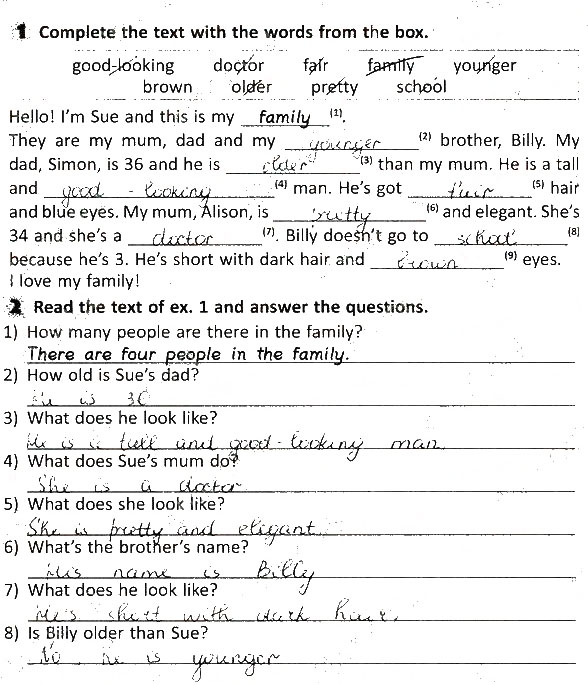 1 Complete the text with the words from the box.
good-looking doctor fair family younger
brown older pretty school
Hello! I'm Sue and this is my family (1).
They are my mum, dad and my younger (2) brother, Billy. My
dad, Simon, is 36 and he is older (3) than my mum. He is a tall
and good - looking (4) man. He's got fair (5) hair
and blue eyes. My mum, Alison, is pretty (6) and elegant. She's
34 and she's a doctor (7). Billy doesn't go to school (8)
because he's 3. He's short with dark hair and brown (9) eyes.
I love my family!
2 Read the text of ex. 1 and answer the questions.
1) How many people are there in the family?
There are four people in the family.
2) How old is Sue's dad?
He is 36
3) What does he look like?
He is a tall and good-looking man
4) What does Sue's mum do?
She is a doctor
5) What does she look like?
She is pretty and eligant.
6) What's the brother's name?
His name is Billy
7) What does he look like?
He's short with dark hair.
8) Is Billy older than Sue?
No he is younger